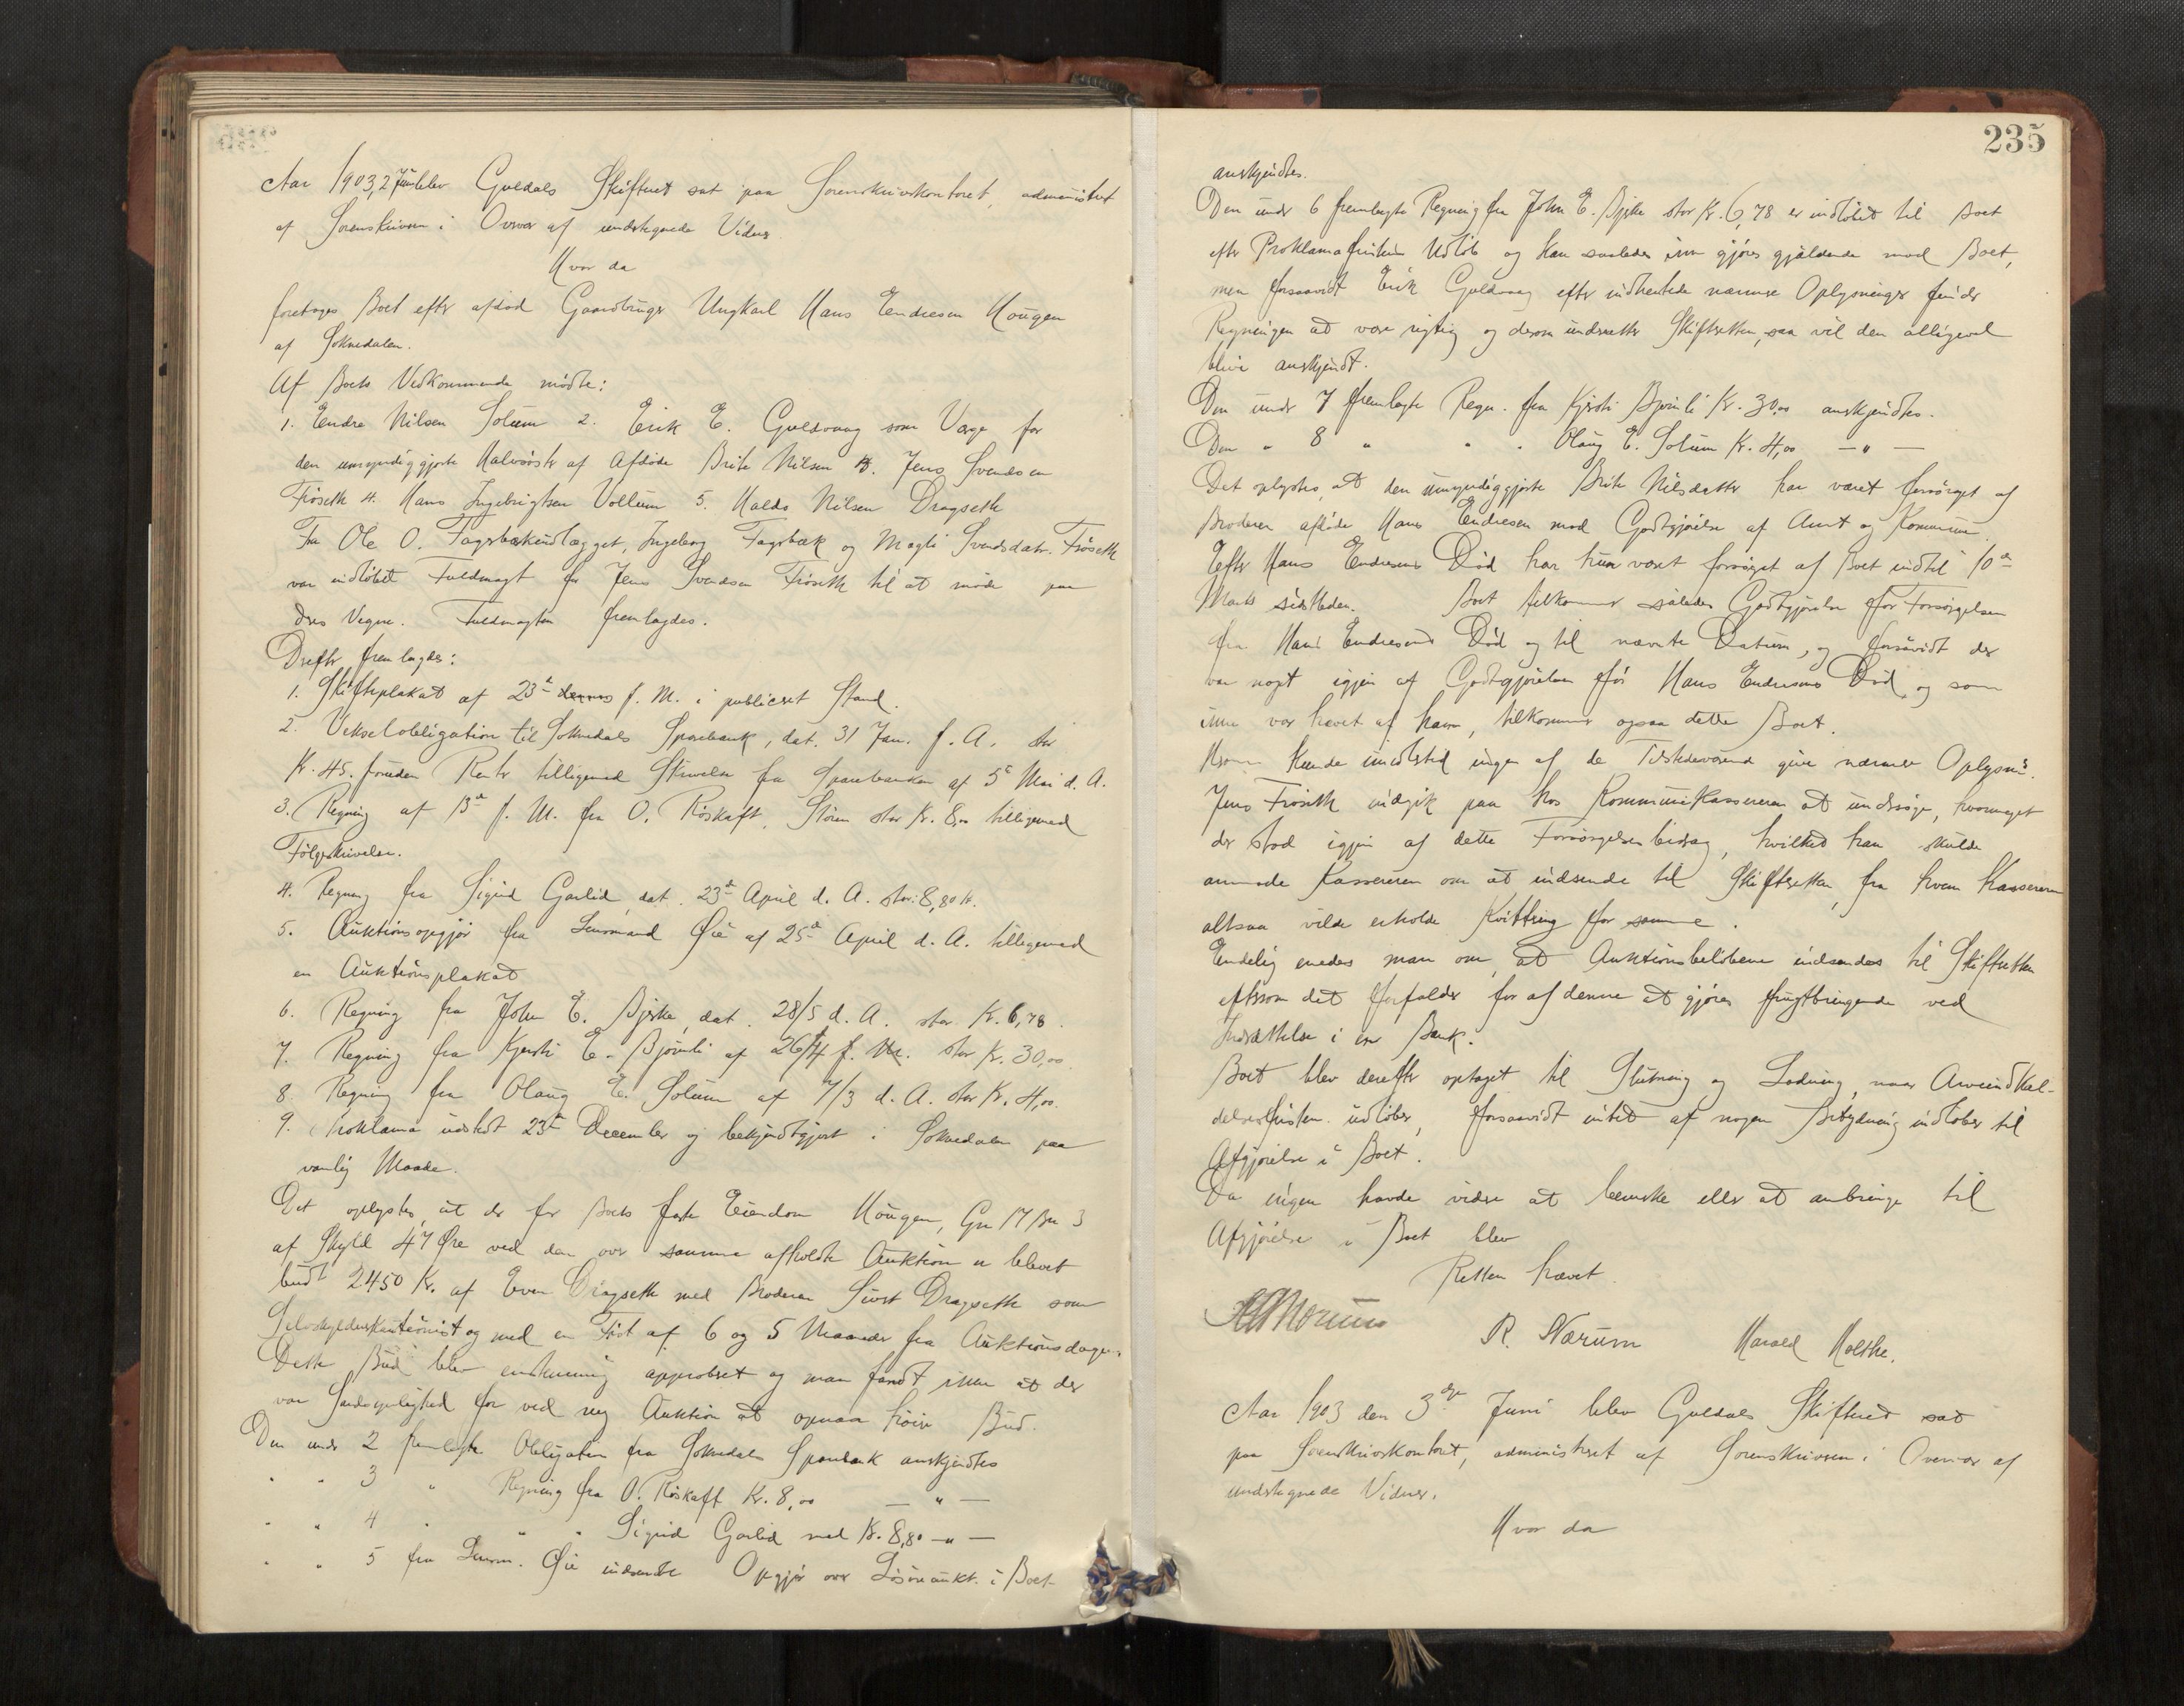 Aar 1903, 2 Juni blev Guldals Skifteret sat paa Sorenskriverkontoret, administret
af Sorenskriveren i Overvær af undertegnede Vidner.
Hvor da
foretoges Boet efter afdød Gaardbruger Ungkarl Hans Endresen Hougen
af Soknedalen.
Af Boets Vedkommende mødte:
1. Endre Nilsen Solum 2. Erik E. Guldvaag som Verge for
den umyndiggjorte Halvsøster af Afdøde Brite Nilsen 3. Jens Svendsen
Frøseth 4. Hans Ingebrigtsen Vollum 5. Haldo Nilsen Dragseth
Fra Ole O. Fagerbækindlægget, Ingeborg Fagerbæk og Magli Svendsdatr. Frøseth
var indløbet Fuldmagt for Jens Svendsen Frøseth til at møde paa
deres Vegne. Fuldmagten fremlagdes.
Derefter fremlagdes:
1. Skifteplakat af 23de dennes f. M. i publiceret Stand.
2. Vekselobligation til Soknedals Sparebank, dat. 31 Jan. f. A. stor
Kr. 45. foruden Renter tilligemed Skrivelse fra Sparebanken af 5te Mai d. A.
3. Regning af 13de f. M. fra O. Røskaft, Støren stor Kr. 8,00 tilligemed
Følgeskrivelse.
4. Regning fra Sigrid Garlid, dat. 23de April d. A. stor 8,80 Kr.
5. Auktionsopgjør fra Lensmand Øie af 25de April d. A. tilligemed
en Auktionsplakat
6. Regning fra John E. Bjerke, dat. 28/5 d. A. stor Kr. 6,78.
7. Regning fra Kjersti E. Bjørnli af 26/4 f. M. stor Kr. 30,00
8. Regning fra Olaug E. Solum af 7/3 d. A. stor Kr. 4,00.
9. Proklama udstedt 23de December og bekjendtgjort i Soknedalen paa
vanlig Maade.
Det oplystes, at der for Boets faste Eiendom Hougen, Gn 17 Bn 3
af Skyld 47 Øre ved den over samme afholdte Auktion er blevet
budt 2450 Kr. af Even Dragseth med Broderen Sivert Dragseth som
Selvskyldnerkautionist og med en Frist af 6 og 5 Maaneder fra Auktionsdagen.
Dette Bud blev enstemmig approberet og man fandt ikke at der
var Sandsynlighed for ved ny Auktion at opnaa høiere Bud.
Den under 2 fremlagte Obligation fra Soknedals Sparebank anerkjendtes
" " 3 " Regning fra O. Røskaft Kr. 8,00 — " —
" " 4 " " " Sigrid Garlid med Kr. 8,80 — " —
" " 5 fra Lensm. Øie indsendte Opgjør over Løsøreaukt. i Boet
235
anerkjendtes.
Den under 6 fremlagte Regning fra John E. Bjerke stor Kr. 6,78 er indløbet til Boet
efter Proklamafristens Udløb og kan saaledes ikke gjøres gjældende mod Boet,
men forsaavidt Erik Guldvaag efter indhentede nærmere Oplysninger finder
Regningen at være rigtig og derom underretter Skifteretten, saa vil den alligevel
blive anerkjendt.
Den under 7 fremlagte Regn. fra Kjersti Bjørnli Kr. 30,00 anerkjendtes.
Den " 8 " " " Olaug E. Solum Kr. 4,00 — " —
Det oplystes, at den umyndiggjorte Brite Nilsdatter har været forsørget af
Broderen afdøde Hans Endresen mod Godtgjørelse af Amt og Kommune.
Efter Hans Endresens Død har hun været forsørget af Boet indtil 10de
Marts sidstleden. Boet tilkommer således Godtgjørelse for Forsørgelsen
fra Hans Endresens Død og til nævnte Datum, og forsåvidt der
var noget igjen af Godtgjørelsen før Hans Endresens Død, og som
ikke var hævet af ham, tilkommer ogsaa dette Boet.
Herom kunde imidlertid ingen af de Tilstedeværende give nærmere Oplysn.
Jens Frøseth indgik paa hos Kommunekassereren at undersøge, hvormeget
der stod igjen af dette Forsørgelsesbidrag, hvilket han skulde
anmode Kassereren om at indsende til Skifteretten, fra hvem Kassereren
altsaa vilde erholde Kvittering for samme.
Endelig enedes man om, at Auktionsbeløbene indsendes til Skifteretten
eftersom det forfalder for af denne at gjøres frugtbringende ved
Indsættelse i en Bank.
Boet blev derefter optaget til Slutning og Lodning, naar Arveindkal-
delsesfristen udløber, forsaavidt intet af nogen Betydning indløber til
Afgjørelse i Boet.
Da ingen havde videre at bemerke eller at anbringe til
Afgjørelse i Boet blev
Retten hævet.
R. Nærum Harald Holthe.
Aar 1903 den 3die Juni blev Guldals Skifteret sat
paa Sorenskriverkontoret, administreret af Sorenskriveren i Overvær af
undertegnede Vidner.
Hvor da